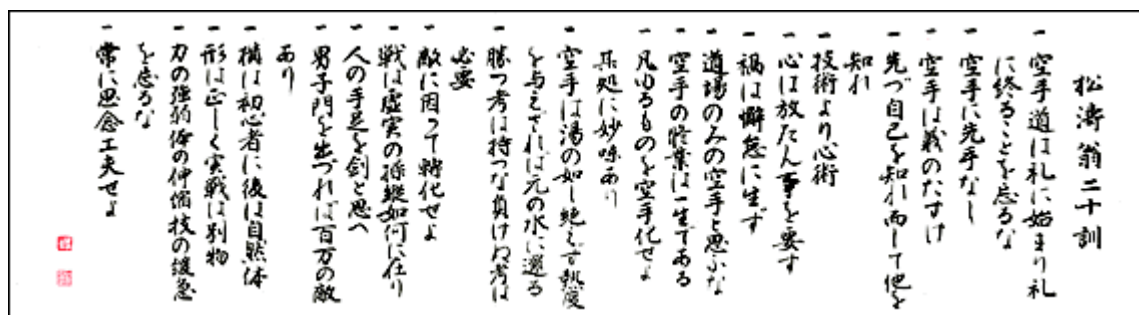 松濤翁二十訓
一 空手道は礼に始まり礼
に終ることを忘るな
一 空手に先手なし
一 空手は義のたすけ
一 先づ自己を知れ而して他を
知れ
一 技術より心術
一 心は放たん事を要す
一 禍は懈怠に生ず
一 道場のみの空手と思ふな
一 空手の修業は一生である
一 凡ゆるものを空手化せよ
其処に妙味あり
一 空手は湯の如し絶えず熱度
を与えざれば元の水に還る
一 勝つ考は持つな負けぬ考は
必要
一 敵に因って轉化せよ
一 戦は虚実の操縦如何に在り
一 人の手足を剣と思へ
一 男子門を出づれば百万の敵
あり
一 構は初心者に後は自然体
一 形は正しく実戦は別物
一 力の強弱体の伸縮技の緩急
を忘るな
一 常に思念工夫せよ